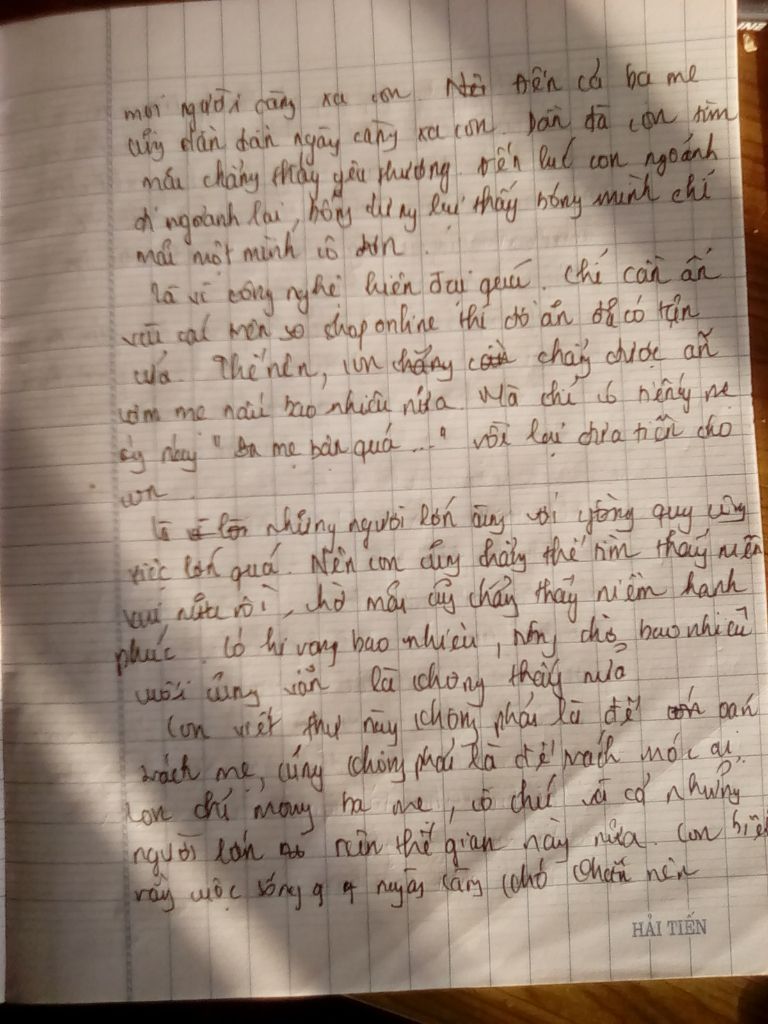 mọi người càng xa con. Nên đến cả ba mẹ
cũng dần dần ngày càng xa con. Dần dà con tìm
mãi chẳng thấy yêu thương. Đến lúc con ngoảnh
đi ngoảnh lại, bỗng dưng lại thấy bóng mình chỉ
mãi một mình cô đơn.
Là vì công nghệ hiện đại quá. Chỉ cần ấn
vài cái trên shop online thì đồ ăn đã có tận
cửa. Thế nên, con chẳng còn được ăn
cơm mẹ nấu bao nhiêu nữa. Mà chỉ có tiếng mẹ
"Ba mẹ bận quá..." rồi lại đưa tiền cho
con.
Là những người lớn cùng với vòng quy công
việc lớn quá. Nên con cũng chẳng thể tìm thấy niềm
vui nữa rồi, chờ mãi cũng chẳng thấy niềm hạnh
phúc. Có hi vọng bao nhiêu, trông chờ bao nhiêu
cuối cùng vẫn là không thấy nữa
Con viết thư này không phải là để oán
trách mẹ, cũng không phải là để trách móc ai.
Con chỉ mong ba mẹ, cô chú và cả những
người lớn trên thế gian này nữa. Con biết
rằng cuộc sống ngày càng khó khăn nên
HẢI TIẾN